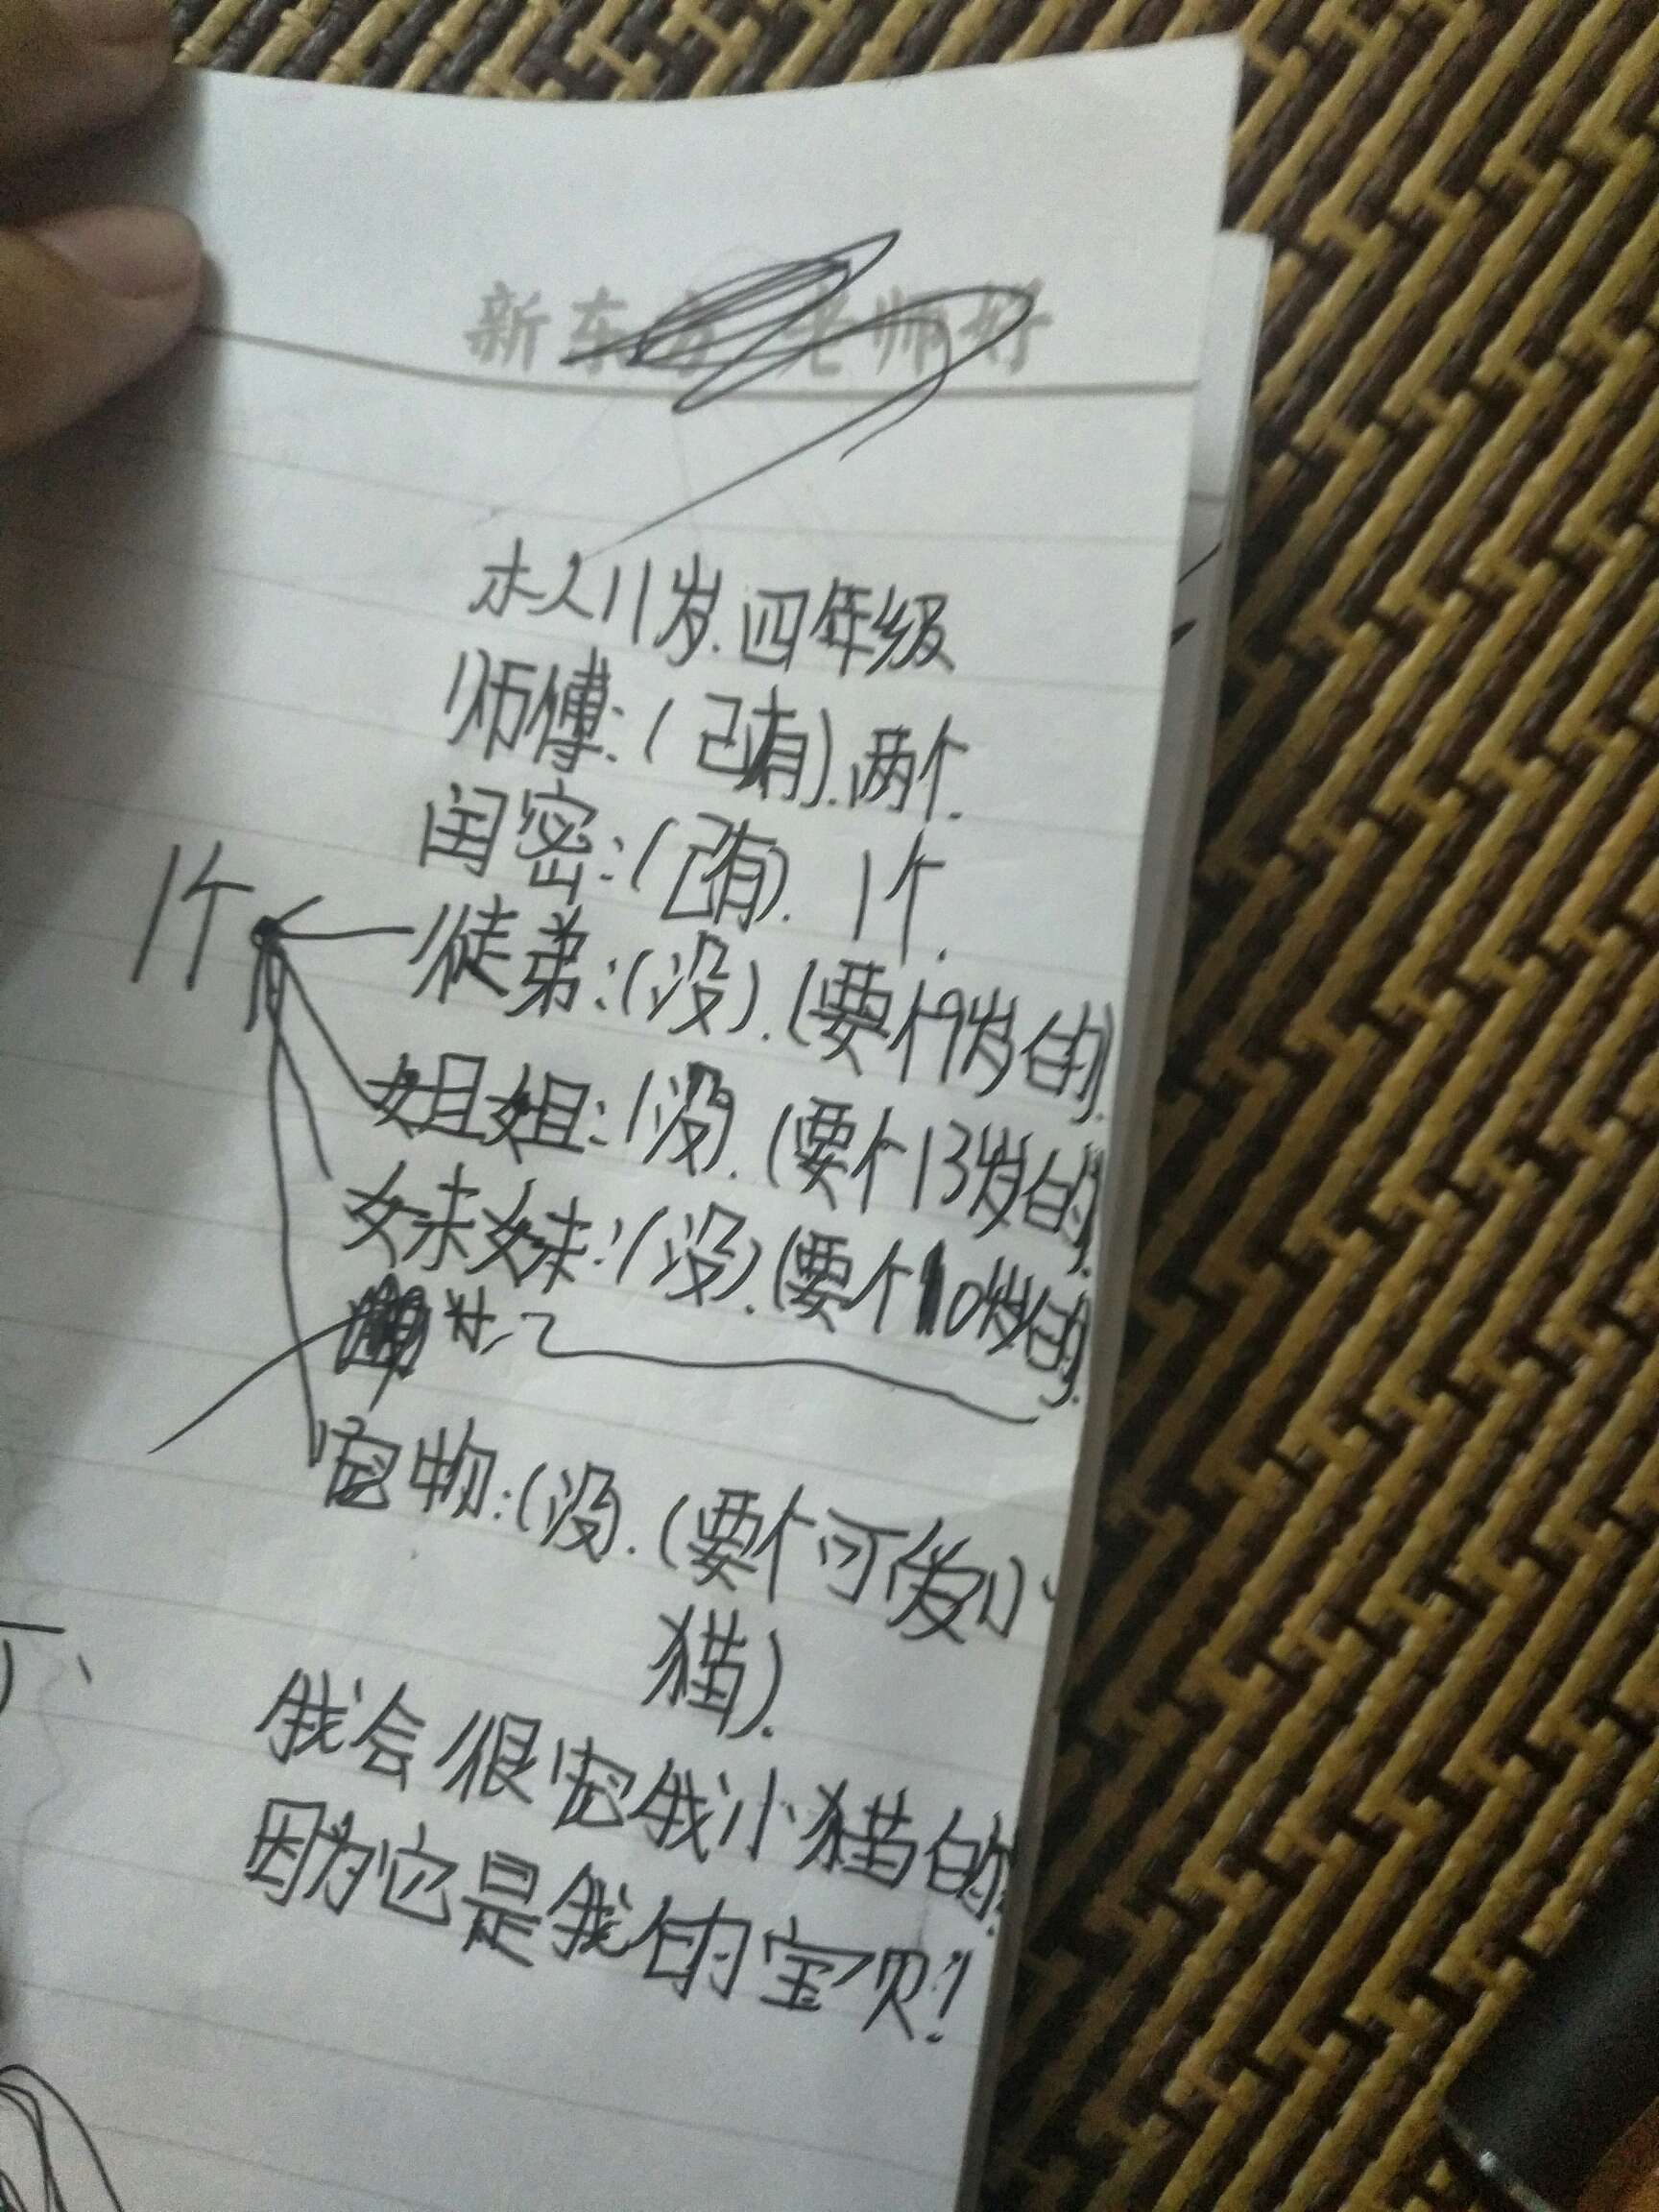 新东方 老师好
本人11岁.四年级
师傅:(己有).两个.
闺密:(己有). 1个.
1个
徒弟:(没).(要个9岁的).
姐姐:(没).(要个13岁的).
妹妹:(没).(要个10岁的).
宠物:(没).(要个可爱小
猫).
我会很宠我小猫的,
因为它是我的宝贝!